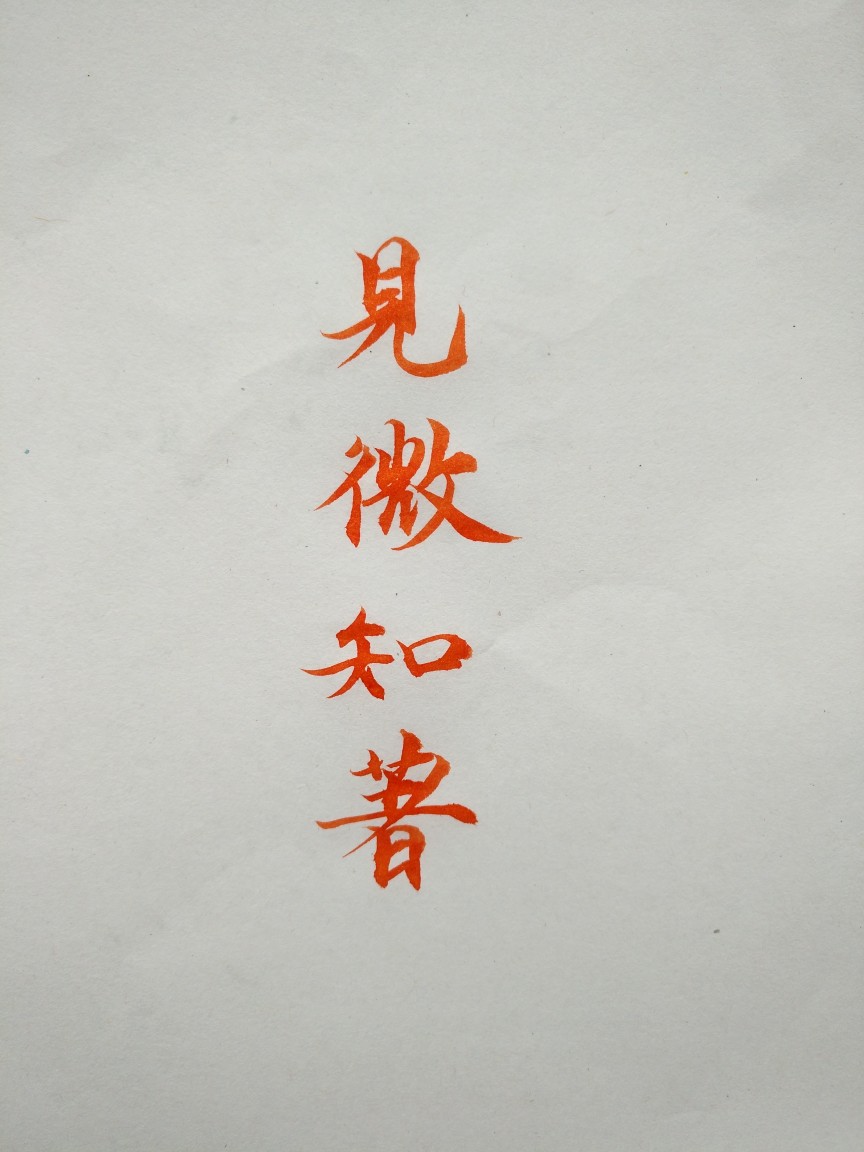 見微知著